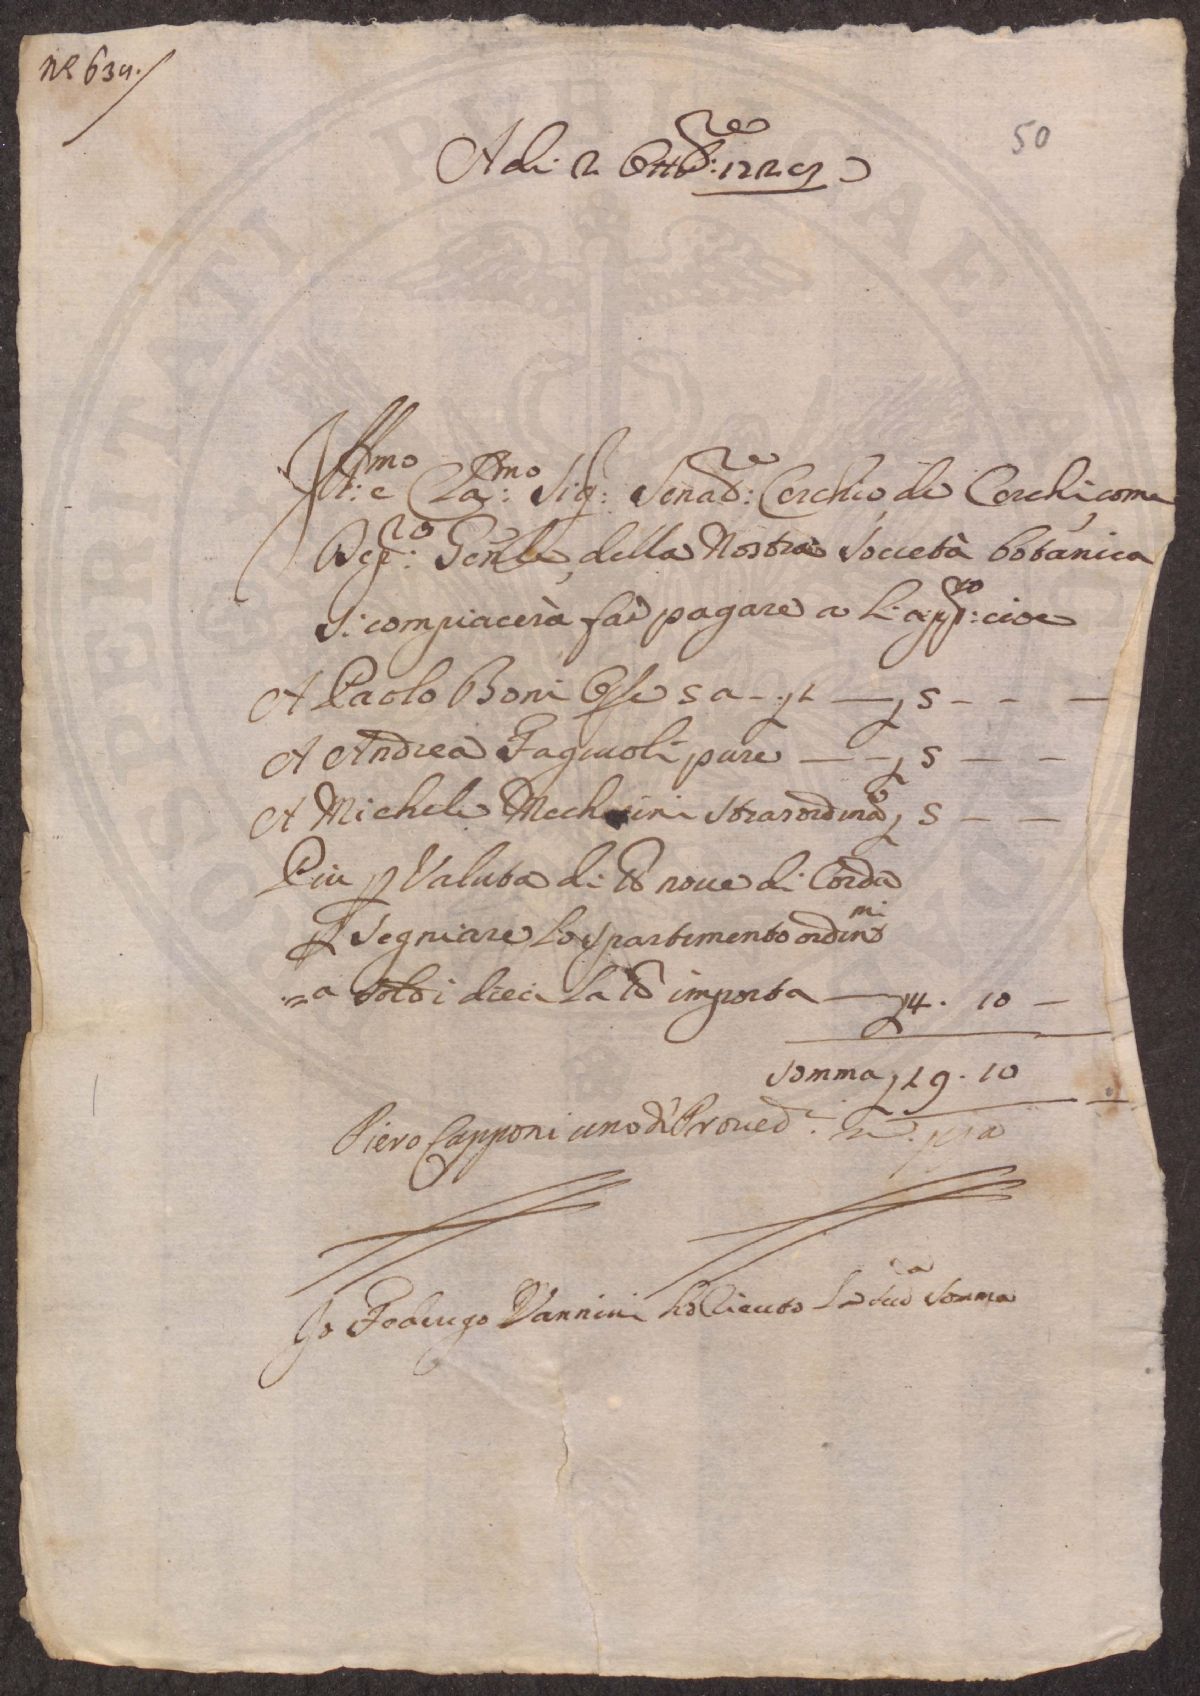 N.º 639.
50
A di 2 Ottb:re 1729
Ill:mo e Cla:mo Sig: Senad:re Cerchio de Cerchi, come
Seg:ro Gen:le della Nostra Società botanica
si compiacerà far pagare a l'app:to cioe
A Paolo Boni Ope 5 a — £1 — £ 5 — — —
A Andrea Fagiuoli pure — — £ 5 — — —
A Michele Mecherini strarordin:o £ 5 — — —
Piu p Valuta di lb nove di Corda
p segniare lo spartimento ordin:mi
= a soldi dieci la lb importa — £ 4 . 10 —
Somma £ 19 . 10
Piero Capponi uno d' Proved:i m:o pp:a
Io Federigo Vannini ho riceuto la sud:a somma